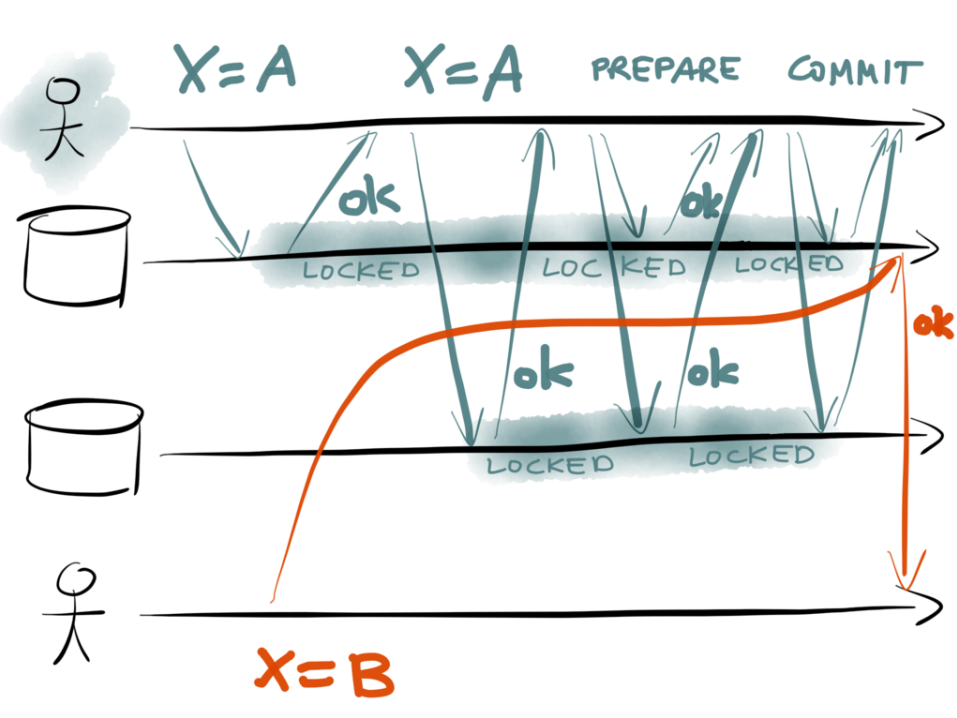 X=A X=A PREPARE COMMIT
ok ok
LOCKED LOCKED LOCKED
ok
ok ok
LOCKED LOCKED
X=B